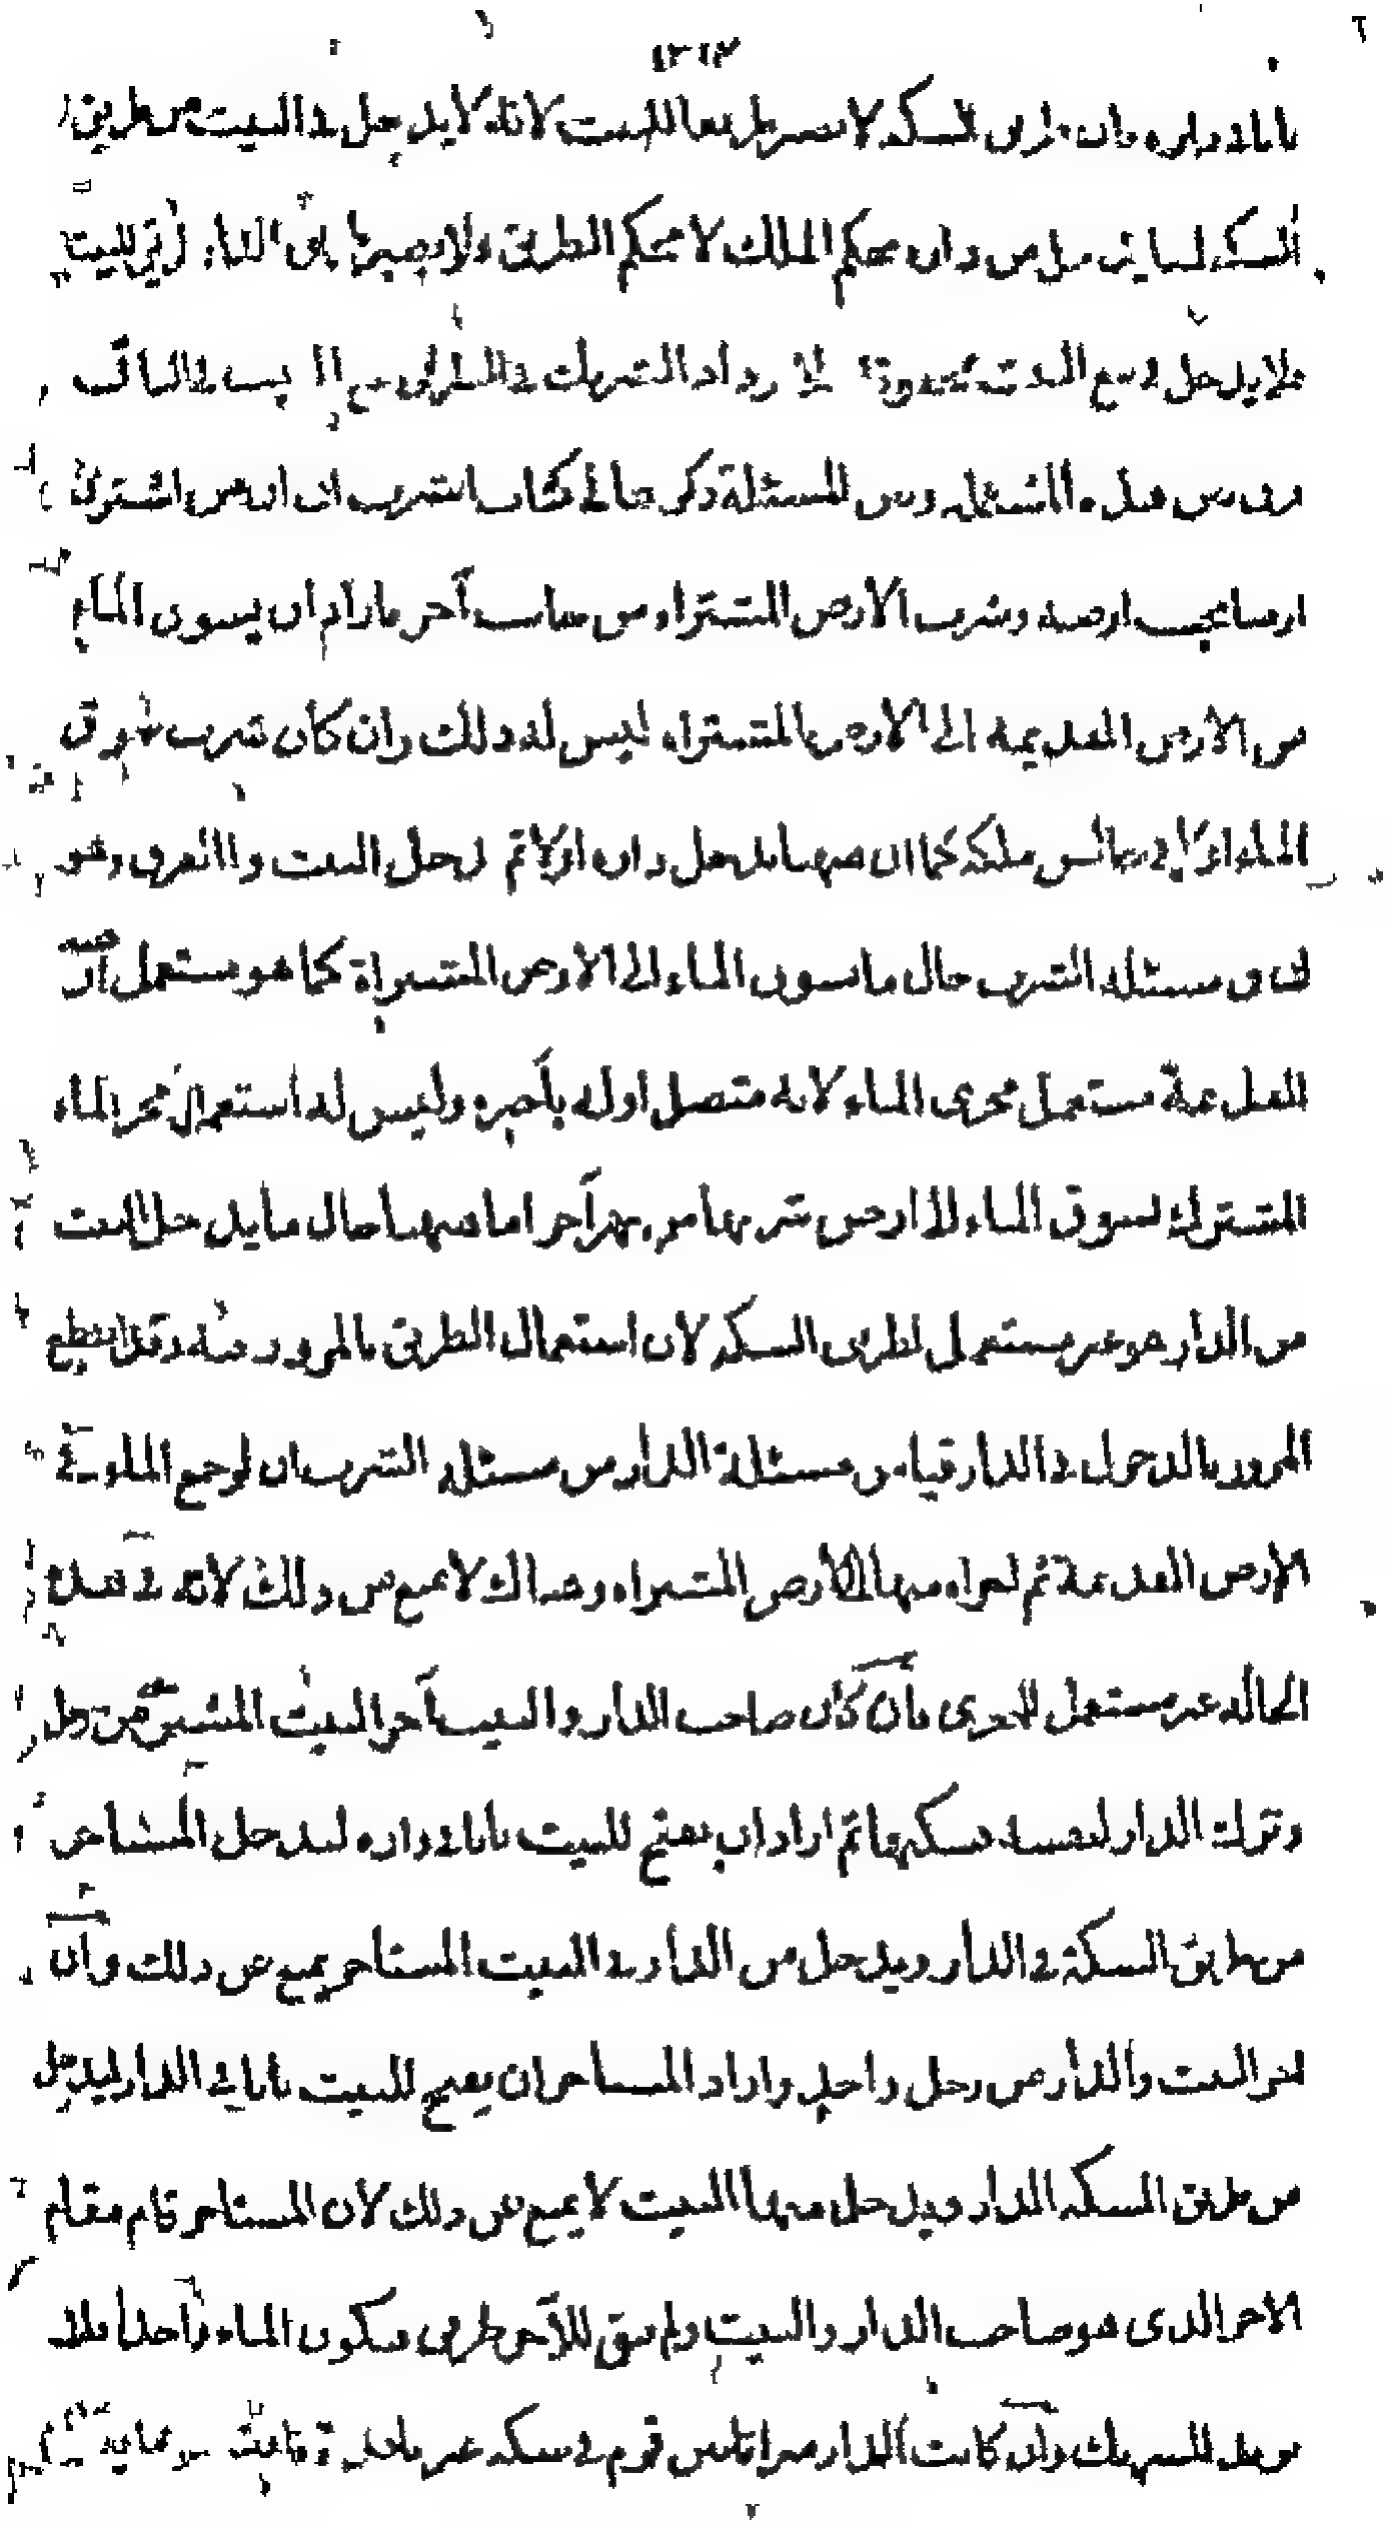 بابا في داره فان طريق السكة لا يصير طريقا للبيت لانه لا يدخل في البيت من طريق
السكة انما يدخل من داره بحكم الملك لا بحكم الطريق ولا يصير للبيت
فلا يدخل في بيع البيت
وفرق بين هذه المسئلة وبين المسئلة ذكرها في كتاب الشرب ان من اشترى
ارضا بجنب ارضه وشرب الارض المشتراه من جانب آخر فاراد ان يسوق الماء
من الارض القديمة الى الارض المشتراه ليس له ذلك وان كان شرب يسوق
الماء اولا في خالص ملكه كما ان ههنا يدخل داره اولا ثم يدخل البيت والفرق وهو
ان في مسئلة الشرب حال ما يسوق الماء الى الارض المشتراة كما هو مستعمل ارضه
القديمة مستعمل مجرى الماء لانه متصل اوله بآخره وليس له استعمال مجر الماء
المشترك لسوق الماء الى ارض شربها من نهر آخر اما ههنا حال ما يدخل البيت
من الدار هو غير مستعمل لطريق السكة لان استعمال الطريق بالمرور منه وقد انقطع
المرور بالدخول في الدار قياس مسئلة الدار من مسئلة الشرب ان لو جمع الماء في
الارض القديمة ثم اجراه منها الى الارض المشتراه وهناك لا يمنع من ذلك لانه في هذه
الحالة غير مستعمل للمجرى فان كان صاحب الدار والبيت آجر البيت المشترى من رجل
وترك الدار لنفسه فسكنها ثم اراد ان يفتح للبيت بابا في داره ليدخل المستاجر
من طريق السكة في الدار ويدخل من الدار في البيت المستاجر يمنع عن ذلك وان
اجر البيت والدار من رجل واحد واراد المستاجر ان يفتح للبيت بابا في الدار ليدخل
من طريق السكة الدار ويدخل منها البيت لا يمنع عن ذلك لان المستاجر قام مقام
الآجر الذى هو صاحب الدار والبيت ولم يبق للآجر طريق فيكون الماء واحدا فلا
وان كانت الدار ميراثا بين قوم في سكة غير نافذة